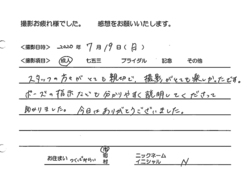 撮影お疲れ様でした。 感想をお願いいたします。
＜撮影日時＞ 2020年 7月19日(日)
＜撮影項目＞ 成人 七五三 ブライダル 記念 その他
スタッフの方々がとても親切で、撮影がとても楽しかったです。
ポーズの指示なども分かりやすく説明してくださって
助かりました。今日はありがとうございました。
お住まい つくばみらい 市 町 村
ニックネーム イニシャル N